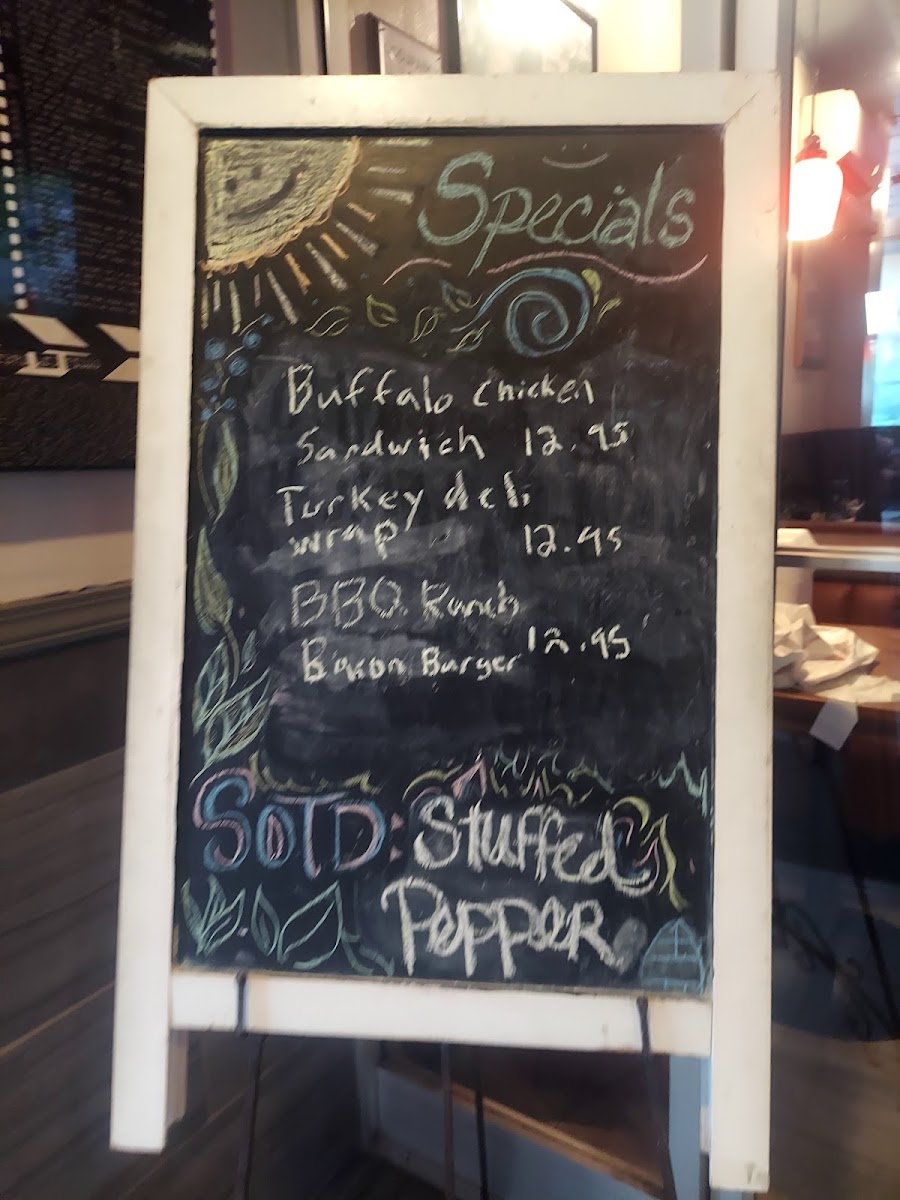 Specials
Buffalo Chicken
Sandwich 12.95
Turkey deli
wrap 12.95
BBQ Ranch
Bacon Burger 12.95
SOTD: Stuffed
Pepper